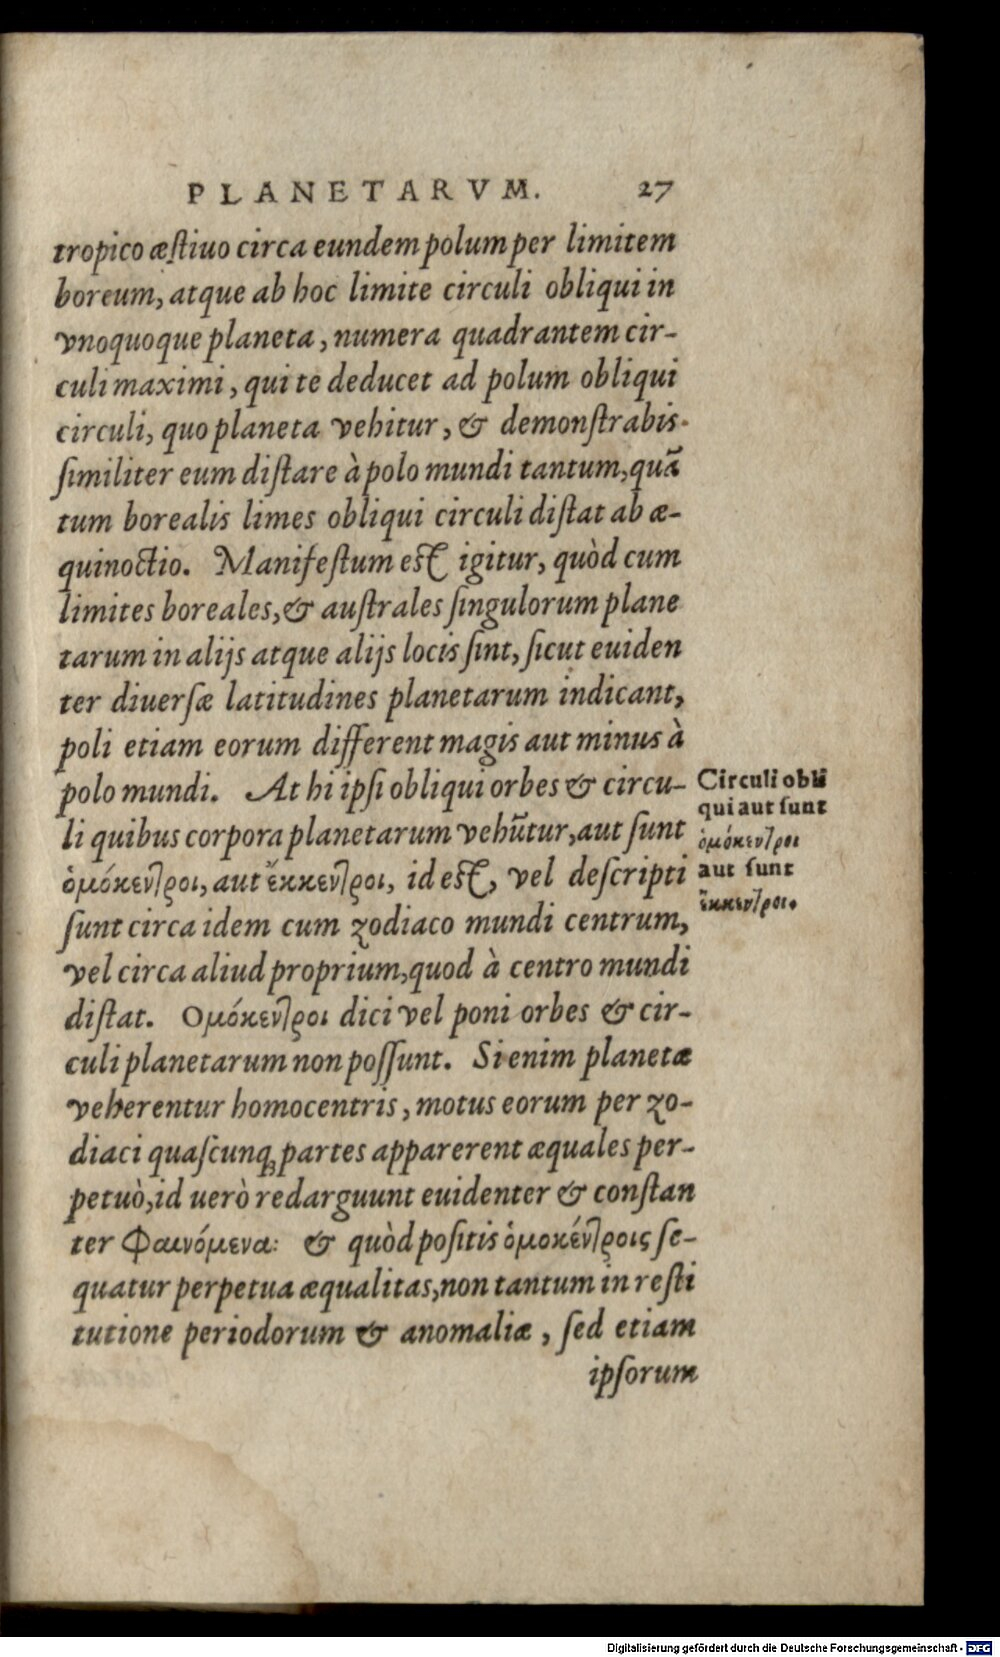 PLANETARVM. 27
tropico æſtiuo circa eundem polum per limitem
boreum, atque ab hoc limite circuli obliqui in
vnoquoque planeta, numera quadrantem cir-
culi maximi, qui te deducet ad polum obliqui
circuli, quo planeta vehitur, & demonſtrabis
ſimiliter eum diſtare à polo mundi tantum, quā
tum borealis limes obliqui circuli diſtat ab æ-
quinoctio. Manifeſtum eſt igitur, quòd cum
limites boreales, & auſtrales ſingulorum plane
tarum in alijs atque alijs locis ſint, ſicut euiden
ter diuerſæ latitudines planetarum indicant,
poli etiam eorum different magis aut minus à
polo mundi. At hi ipſi obliqui orbes & circu-
li quibus corpora planetarum vehūtur, aut ſunt
ὁμόκεντροι, aut ἔκκεντροι, id eſt, vel deſcripti
ſunt circa idem cum zodiaco mundi centrum,
vel circa aliud proprium, quod à centro mundi
diſtat. Ομόκεντροι dici vel poni orbes & cir-
culi planetarum non poſſunt. Si enim planetæ
veherentur homocentris, motus eorum per zo-
diaci quaſcunq; partes apparerent æquales per-
petuò, id uerò redarguunt euidenter & conſtan
ter Φαινόμενα: & quòd poſitis ὁμοκέντροις ſe-
quatur perpetua æqualitas, non tantum in reſti
tutione periodorum & anomaliæ, ſed etiam
ipſorum
Circuli obli
qui aut ſunt
ὁμόκεντροι
aut ſunt
ἔκκεντροι.
Digitalisierung gefördert durch die Deutsche Forschungsgemeinschaft - DFG